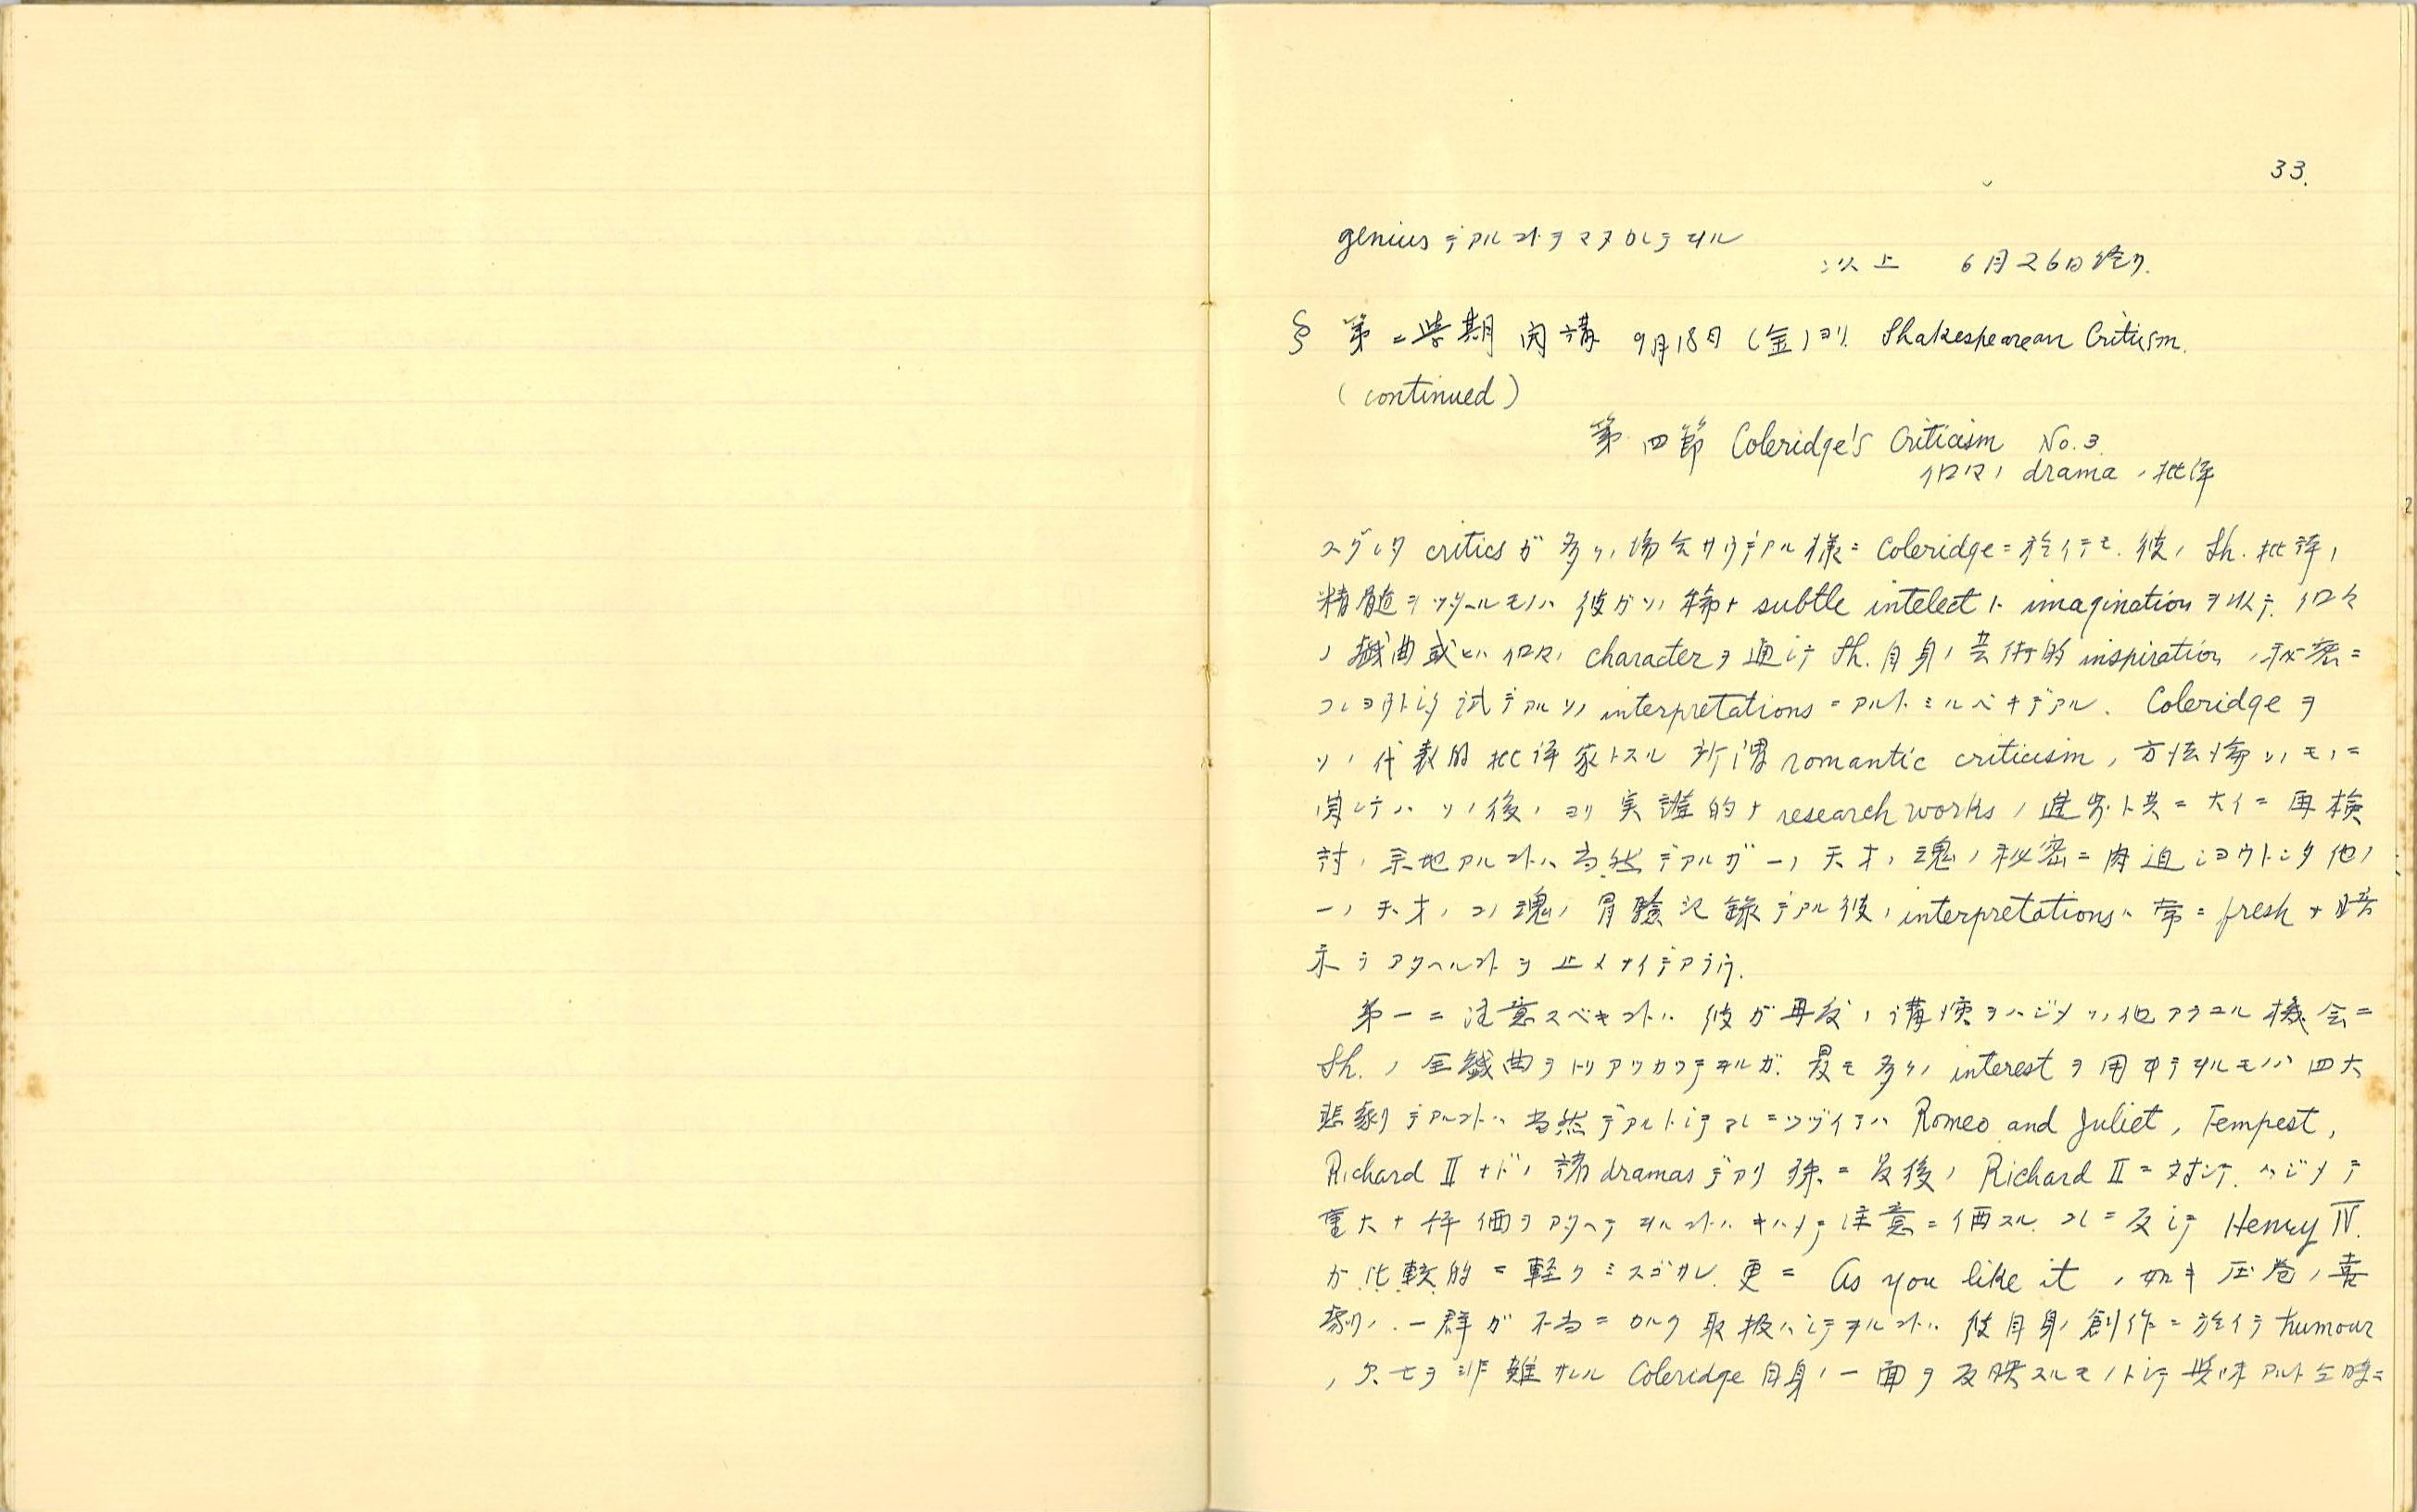 33.
genius デアルコトヲマヌカレテヰル
以上 6月26日終リ.
§ 第二学期 開講 9月18日(金)ヨリ. Shakespearean Criticism.
(continued)
第四節 Coleridge's Criticism No.3.
個々ノ drama ノ批評
スグレタ criticsガ 多クノ場合サウデアル様ニ Coleridgeニ於イテモ. 彼ノ Sh. 批評ノ
精髄ヲツタヘルモノハ 彼ガソノ稀ナ subtle intelect ト imagination ヲ以テ. 個々
ノ戯曲或ヒハ個々ノ characterヲ通ジテ Sh. 自身ノ芸術的 inspiration ノ秘密ニ
フレヨウトシタ試デアルソノ interpretationsニアルトミルベキデアル. Coleridgeヲ
ソノ代表的批評家トスル所謂 romantic criticism ノ方法論ソノモノニ
関シテハソノ後ノヨリ実證的ナ research works ノ進歩ト共ニ大イニ再検
討ノ余地アルコトハ当然デアルガ一ノ天才ノ魂ノ秘密ニ肉迫シヨウトシタ他ノ
一ノ天才ノコノ魂ノ冒験記録デアル彼ノ interpretationsハ常ニ fresh ナ暗
示ヲアタヘルコトヲ止メナイデアラウ.
第一ニ注意スベキコトハ 彼ガ再度ノ講演ヲハジメソノ他アラユル機会ニ
Sh. ノ全戯曲ヲトリアツカツテヰルガ. 最モ多クノ interest ヲ用ヰテヰルモノハ四大
悲劇デアルコトハ当然デアルトシテコレニツヅイテハ Romeo and Juliet, Tempest,
Richard II ナドノ諸dramasデアリ殊ニ最後ノ Richard IIニ対シテ. ハジメテ
重大ナ評価ヲアタヘテヰルコトハキハメテ注意ニ価スル. コレニ反シテ Henry IV.
ガ比較的ニ軽クミスゴサレ. 更ニ As you like it ノ如キ圧巻ノ喜
劇ノ一群ガ不当ニカルク取扱ハレテヰルコトハ 彼自身ノ創作ニ於イテ humour
ノ欠乏ヲ非難サルル Coleridge自身ノ一面ヲ反映スルモノトシテ興味アルト同時ニ